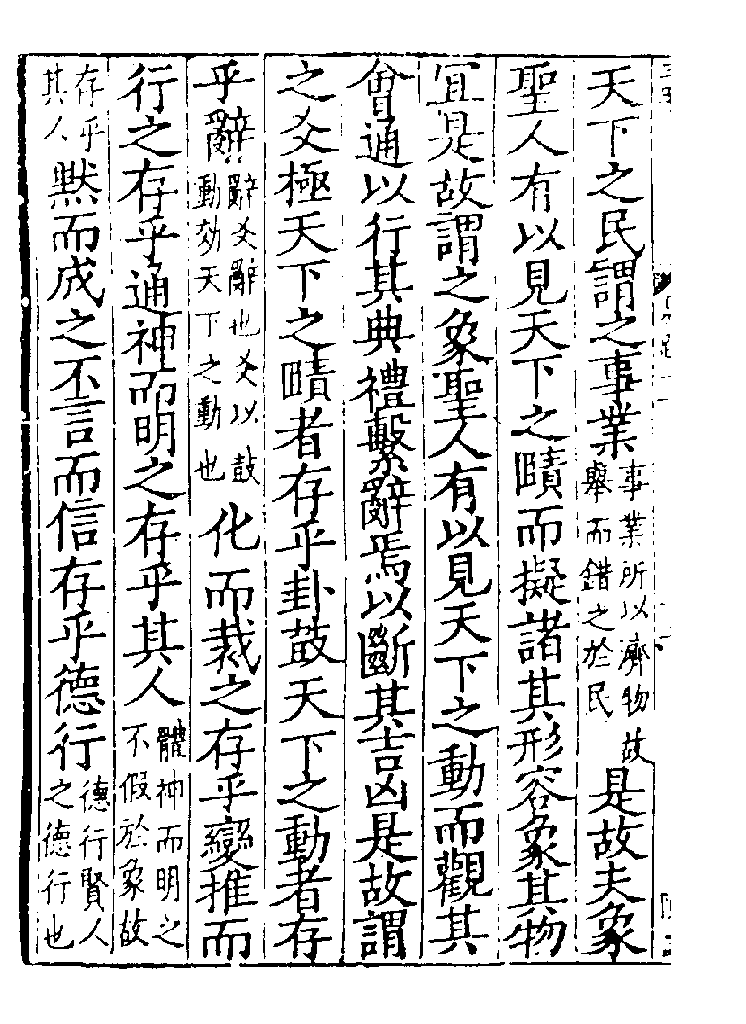 天下之民謂之事業事業所以濟物故舉而錯之於民是故夫象
聖人有以見天下之賾而擬諸其形容象其物
宜是故謂之象聖人有以見天下之動而觀其
會通以行其典禮繫辭焉以斷其吉凶是故謂
之爻極天下之賾者存乎卦鼓天下之動者存
乎辭辭爻辭也爻以鼓動効天下之動也化而裁之存乎變推而
行之存乎通神而明之存乎其人體神而明之不假於象故
存乎其人黙而成之不言而信存乎德行德行賢人之德行也